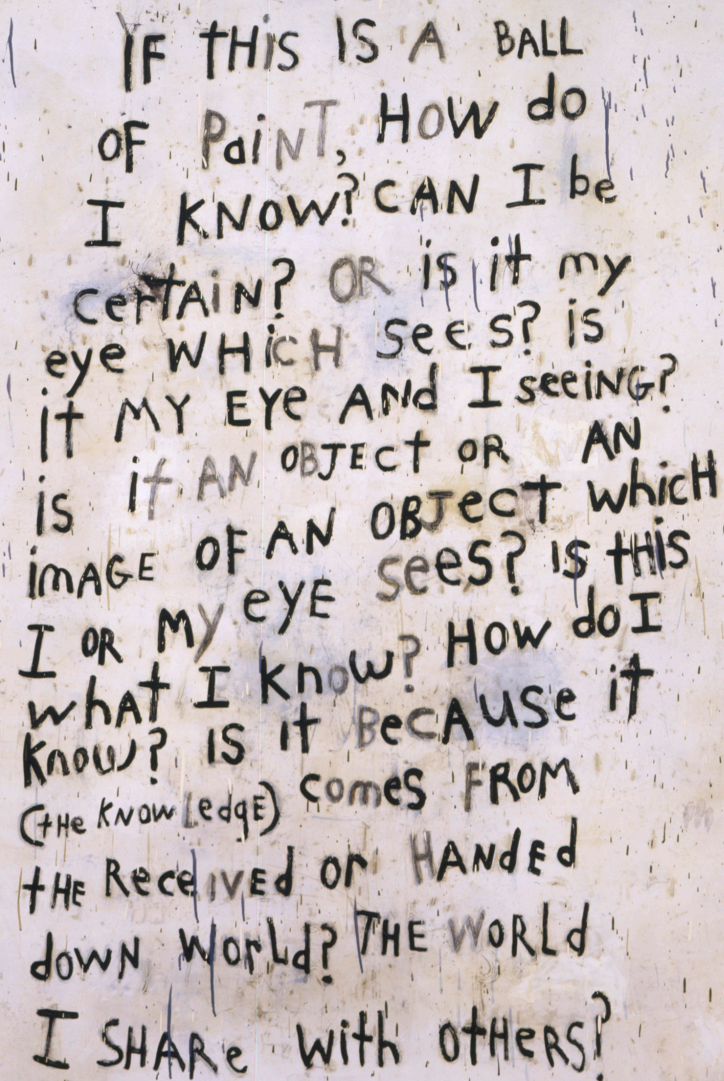 IF tHiS IS A BALL
OF PaiNT, HOW do
I KNOW? CAN I be
certAiN? OR is it my
eye WHicH sees? is
it MY EYe ANd I seeiNG?
is it AN OBJECt OR AN
imAGE OF AN OBJecT whicH
I OR My eyE sees? IS tHiS
whAt I know? HOW do I
Know? IS it BeCAuse it
(tHe KNOWLedgE) comes FROM
tHE ReceivEd or HANdEd
dowN WorLd? THE WORLd
I SHARe with OtHeRS?